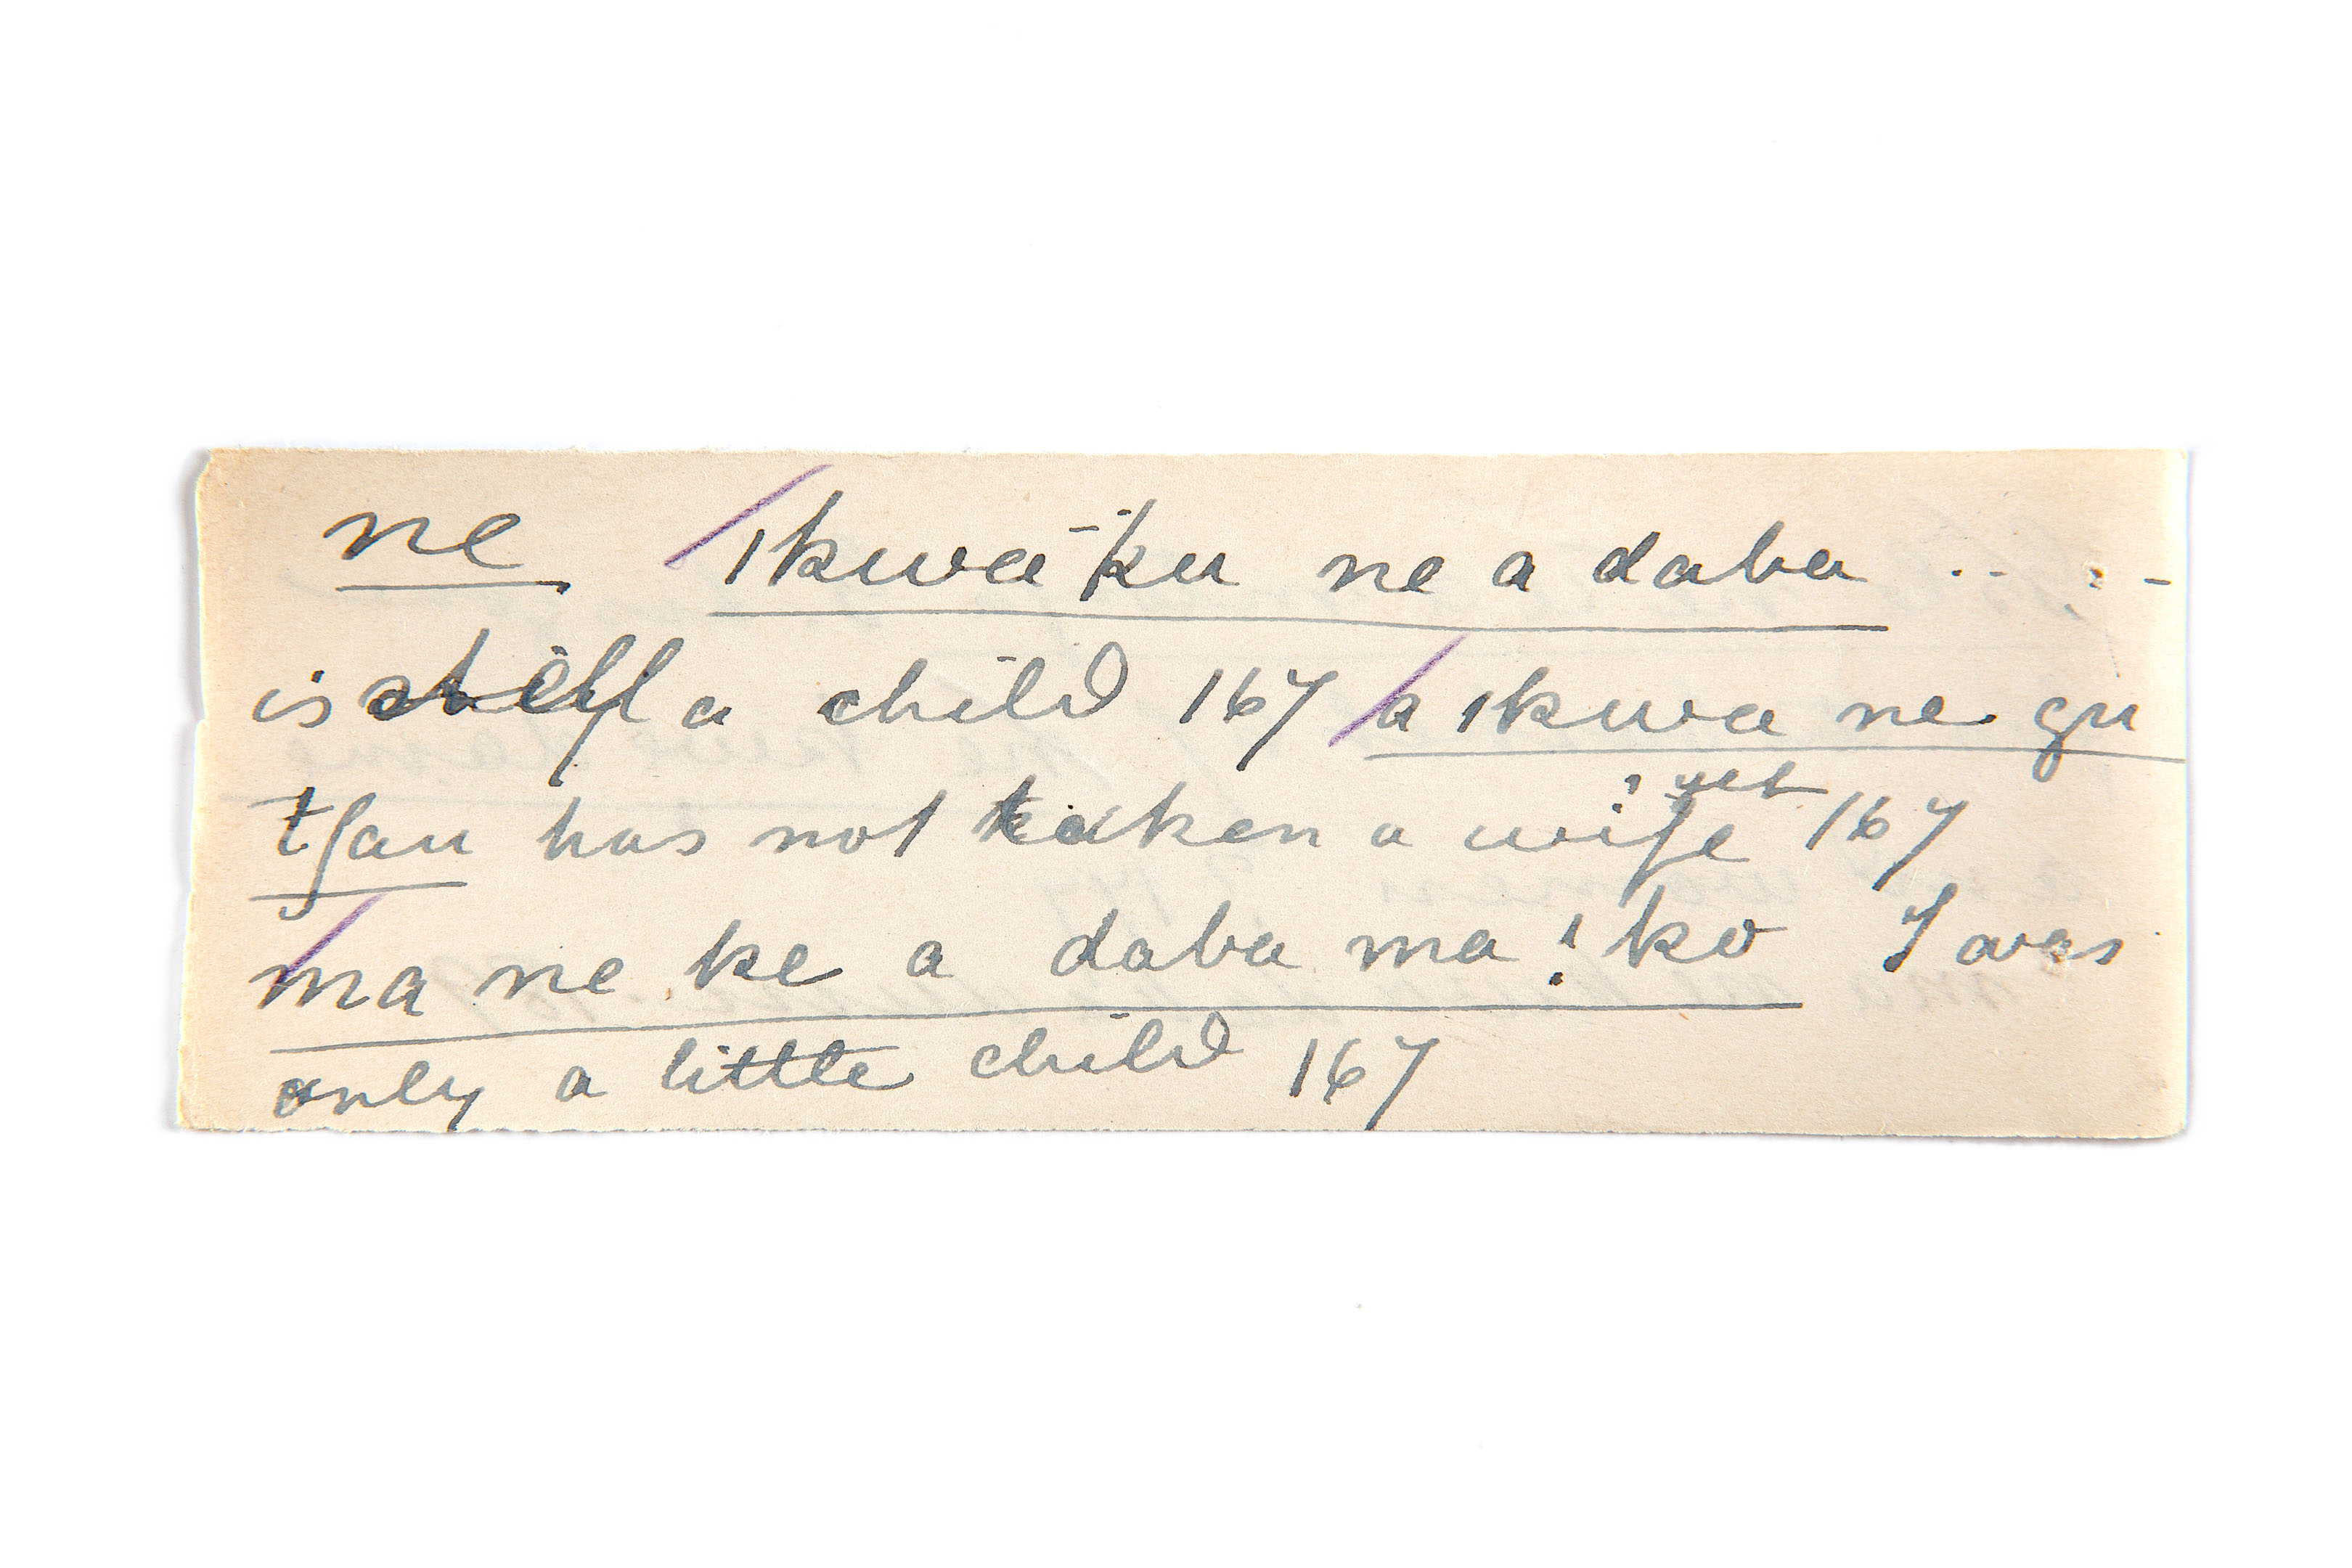 ne /ıkwa ku ne a daba .. : -
is still a child 167 /a ıkwa ne gu
tʃau has not taken a wife yet 167
/ma ne ke a daba ma !ko I was
only a little child 167